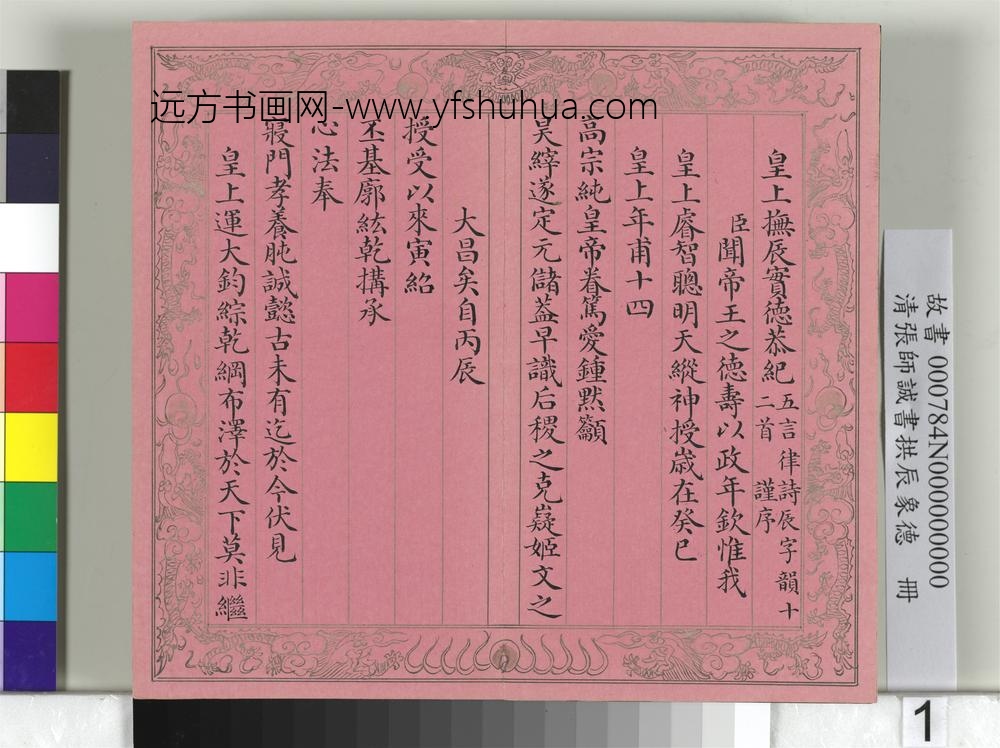 远方书画网-www.yfshuhua.com
皇上撫辰實德恭紀五言律詩辰字韻十二首謹序
臣聞帝王之德壽以政年欽惟我
皇上睿智聰明天縱神授歲在癸巳
皇上年甫十四
高宗純皇帝眷篤愛鍾默籲
昊縡遂定元儲葢早識后稷之克嶷姬文之
大昌矣自丙辰
授受以來寅紹
丕基廓紘乾搆承
心法奉
寢門孝養肫誠懿古未有迄於今伏見
皇上運大鈞綜乾綱布澤於天下莫非繼
故書 000784N000000000
清張師誠書拱辰象德 冊
1